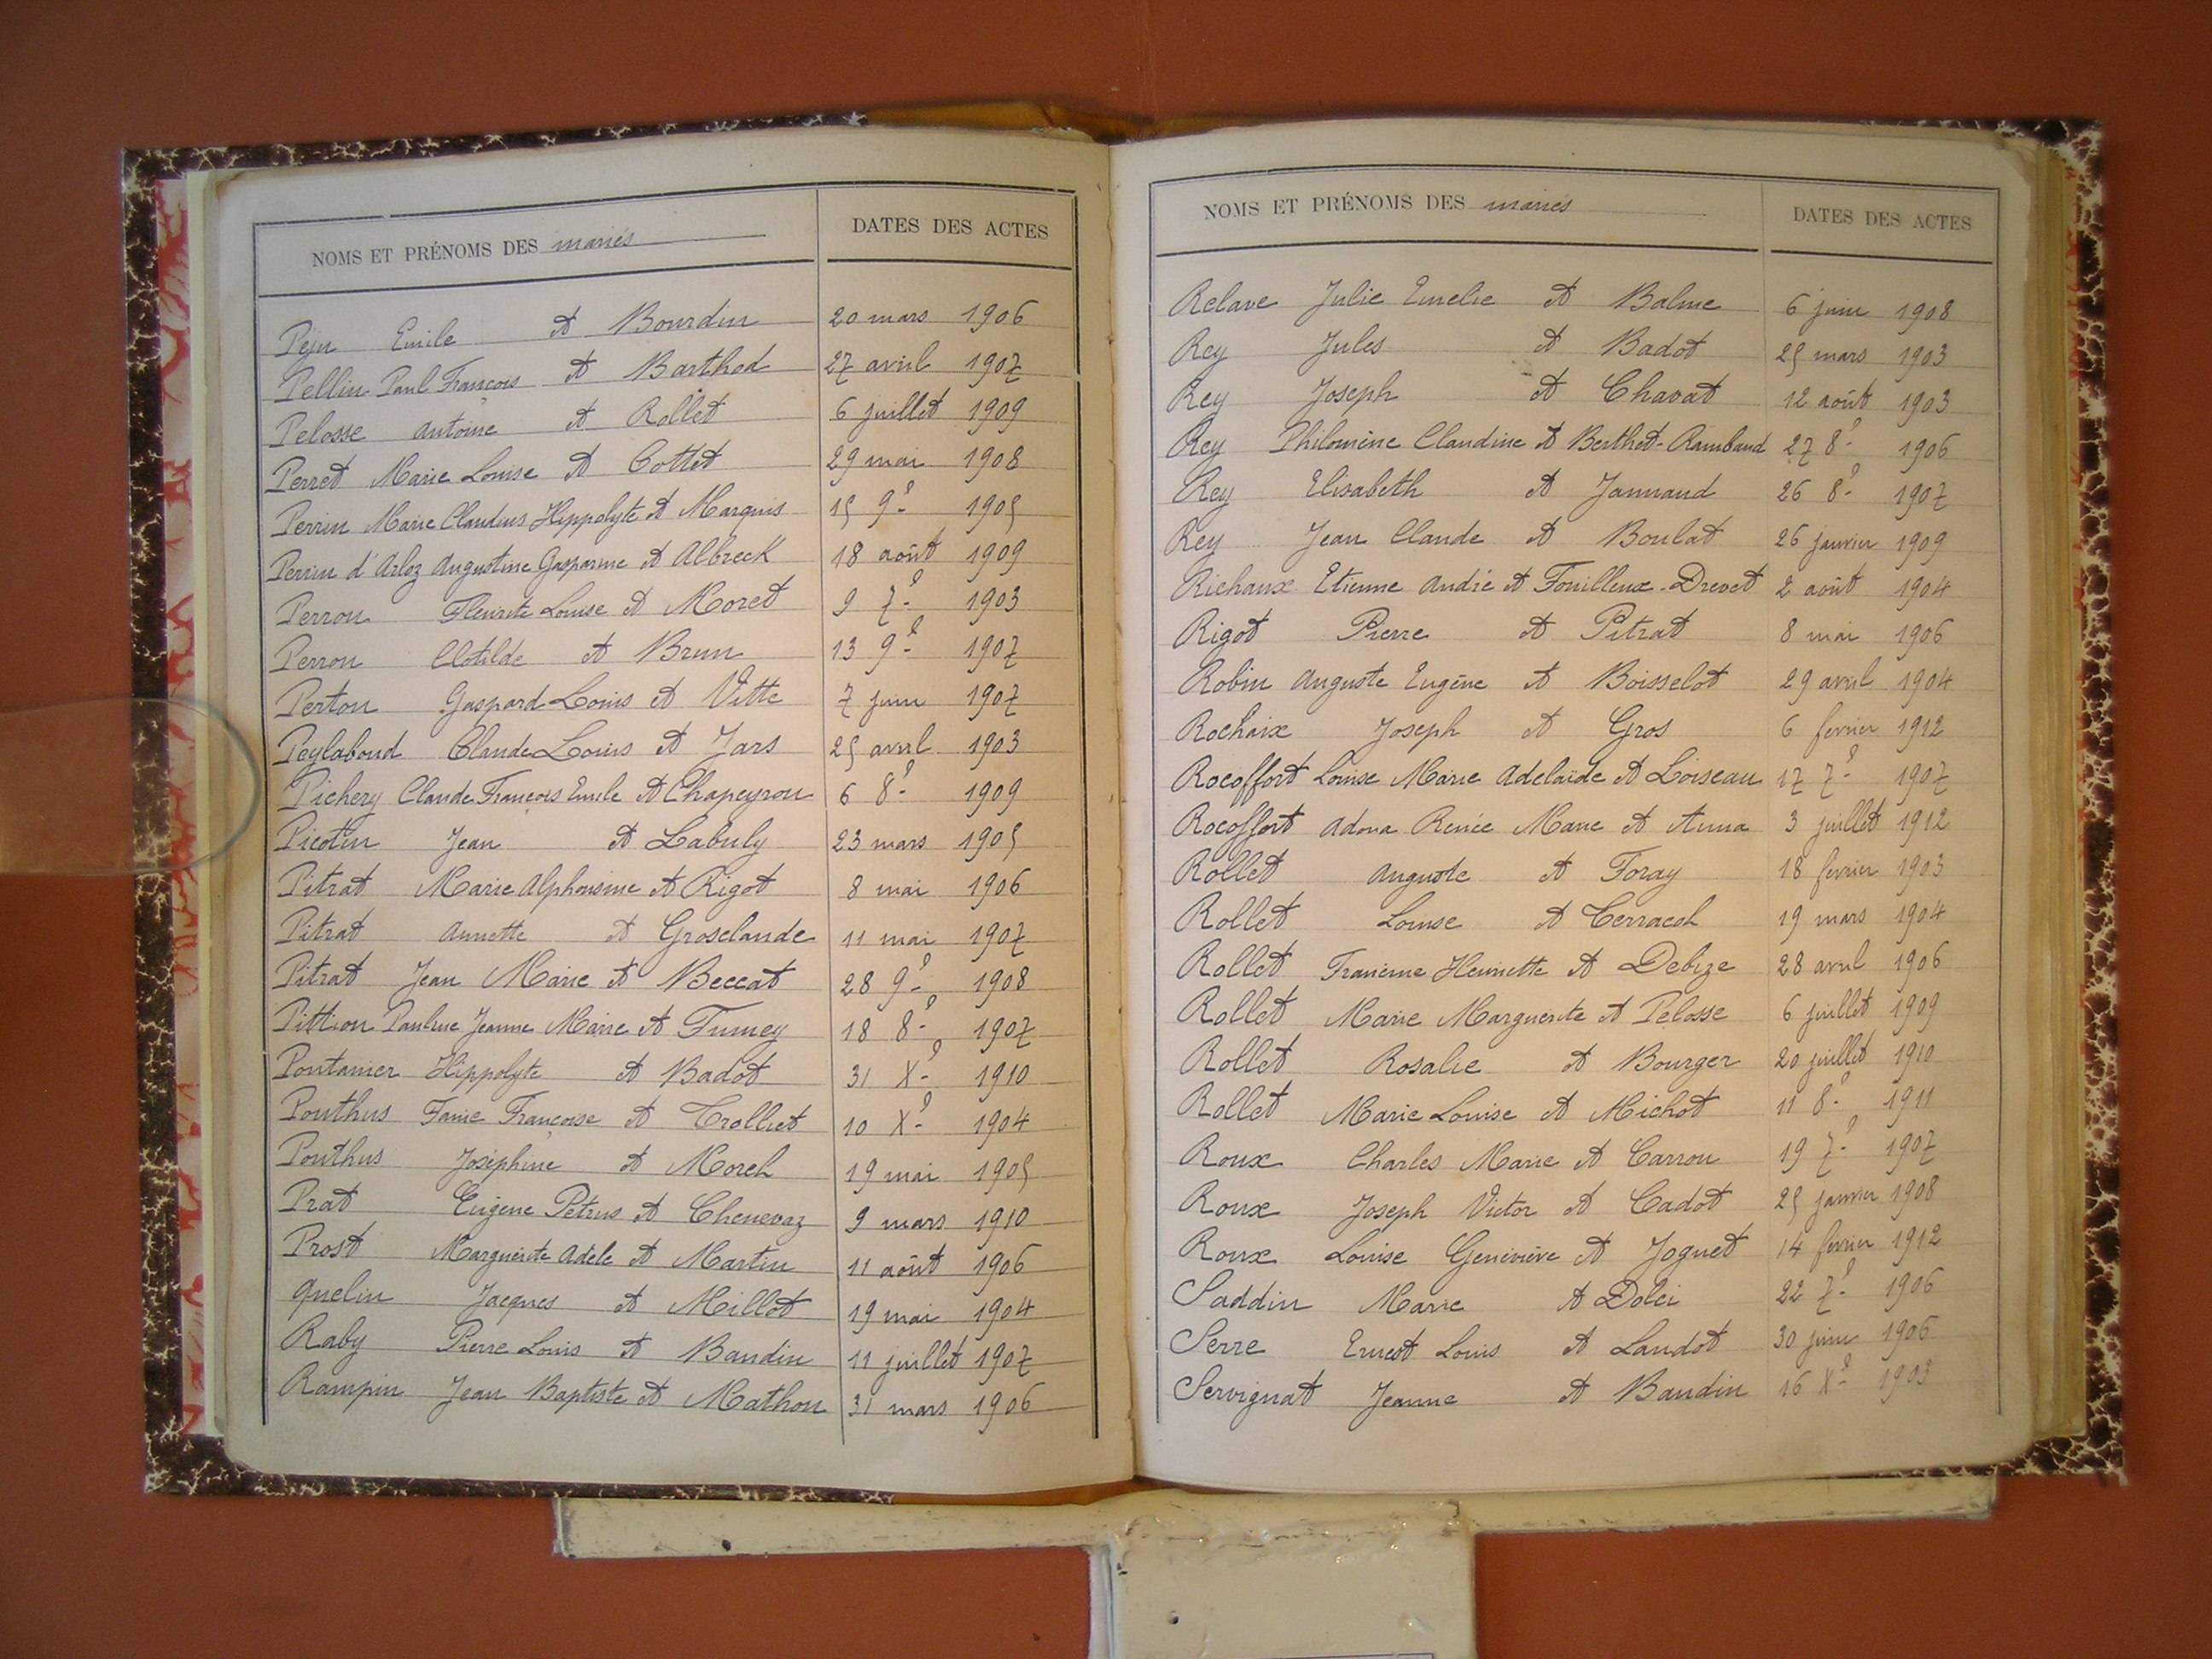 NOMS ET PRÉNOMS DES mariés DATES DES ACTES
Péju Emile et Bourdin 20 mars 1906
Pellin Paul François et Barthod 27 avril 1907
Pelosse Antoine et Rollet 6 juillet 1909
Perret Marie Louise et Cottet 29 mai 1908
Perrin Marie Claudius Hippolyte et Marquis 15 9e 1905
Perrin d'Arloz Augustine Gasparine et Albreck 18 août 1909
Perron Fleurite Louise et Moret 9 7e 1903
Perron Clotilde et Brun 13 9e 1907
Perton Gaspard Louis et Vitte 7 juin 1907
Peylaboud Claude Louis et Jars 25 avril 1903
Pichery Claude François Emile et Chapeyron 6 8e 1909
Picotin Jean et Labuly 23 mars 1905
Pitrat Marie Alphonsine et Rigot 8 mai 1906
Pitrat Annette et Grosclaude 11 mai 1907
Pitrat Jean Marie et Beccat 28 9e 1908
Pittion Pauline Jeanne Marie et Fumey 18 8e 1907
Pontanier Hippolyte et Badot 31 Xe 1910
Ponthus Fanie Françoise et Trolliet 10 Xe 1904
Ponthus Joséphine et Morel 19 mai 1905
Prat Eugène Pétrus et Chenevaz 9 mars 1910
Prost Marguerite Adèle et Martin 11 août 1906
Quelin Jacques et Millot 19 mai 1904
Raby Pierre Louis et Baudin 11 juillet 1907
Rampin Jean Baptiste et Mathon 31 mars 1906
NOMS ET PRÉNOMS DES mariés DATES DES ACTES
Relave Julie Emelie et Balme 6 juin 1908
Rey Jules et Badot 25 mars 1903
Rey Joseph et Chavat 12 août 1903
Rey Philomène Claudine et Berthet-Rambaud 27 8e 1906
Rey Elisabeth et Jannaud 26 8e 1907
Rey Jean Claude et Boulat 26 janvier 1909
Richaux Etienne André et Fouilleux-Drevet 2 août 1904
Rigot Pierre et Pitrat 8 mai 1906
Robin Auguste Eugène et Boisselot 29 avril 1904
Rochaix Joseph et Gros 6 fevrier 1912
Rocoffort Louise Marie Adelaïde et Loiseau 17 7e 1907
Rocoffort Adona Renée Marie et Anna 3 juillet 1912
Rollet Auguste et Foray 18 fevrier 1903
Rollet Louise et Terracol 19 mars 1904
Rollet Francine Henriette et Debize 28 avril 1906
Rollet Marie Marguerite et Pelosse 6 juillet 1909
Rollet Rosalie et Bourger 20 juillet 1910
Rollet Marie Louise et Michot 11 8e 1911
Roux Charles Marie et Carron 19 7e 1907
Roux Joseph Victor et Cadot 25 janvier 1908
Roux Louise Geneviève et Joguet 14 fevrier 1912
Saddin Marie et Dolci 22 7e 1906
Serre Ernest Louis et Landot 30 juin 1906
Servignat Jeanne et Baudin 16 Xe 1903